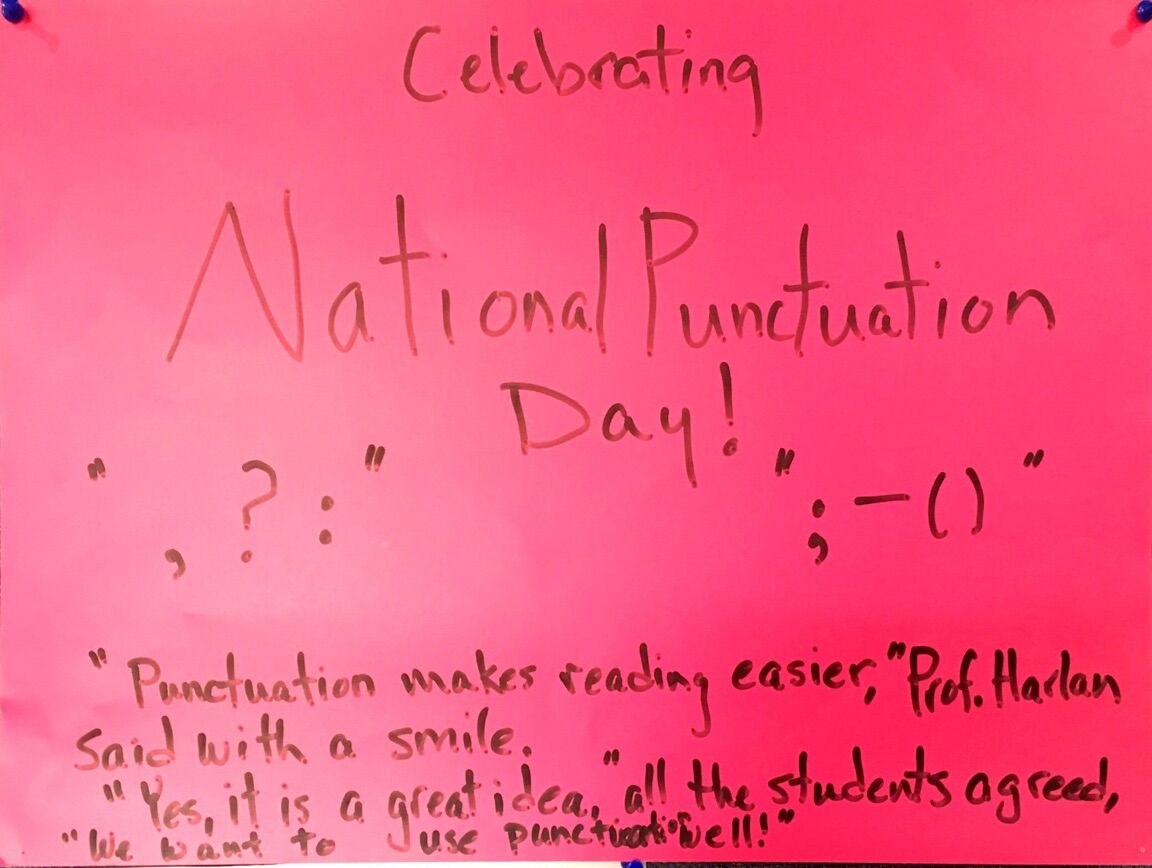 Celebrating
National Punctuation
Day!
" , ? : " " ; - ( ) "
"Punctuation makes reading easier," Prof. Harlan
said with a smile.
"Yes, it is a great idea," all the students agreed,
"We want to use punctuation well!"